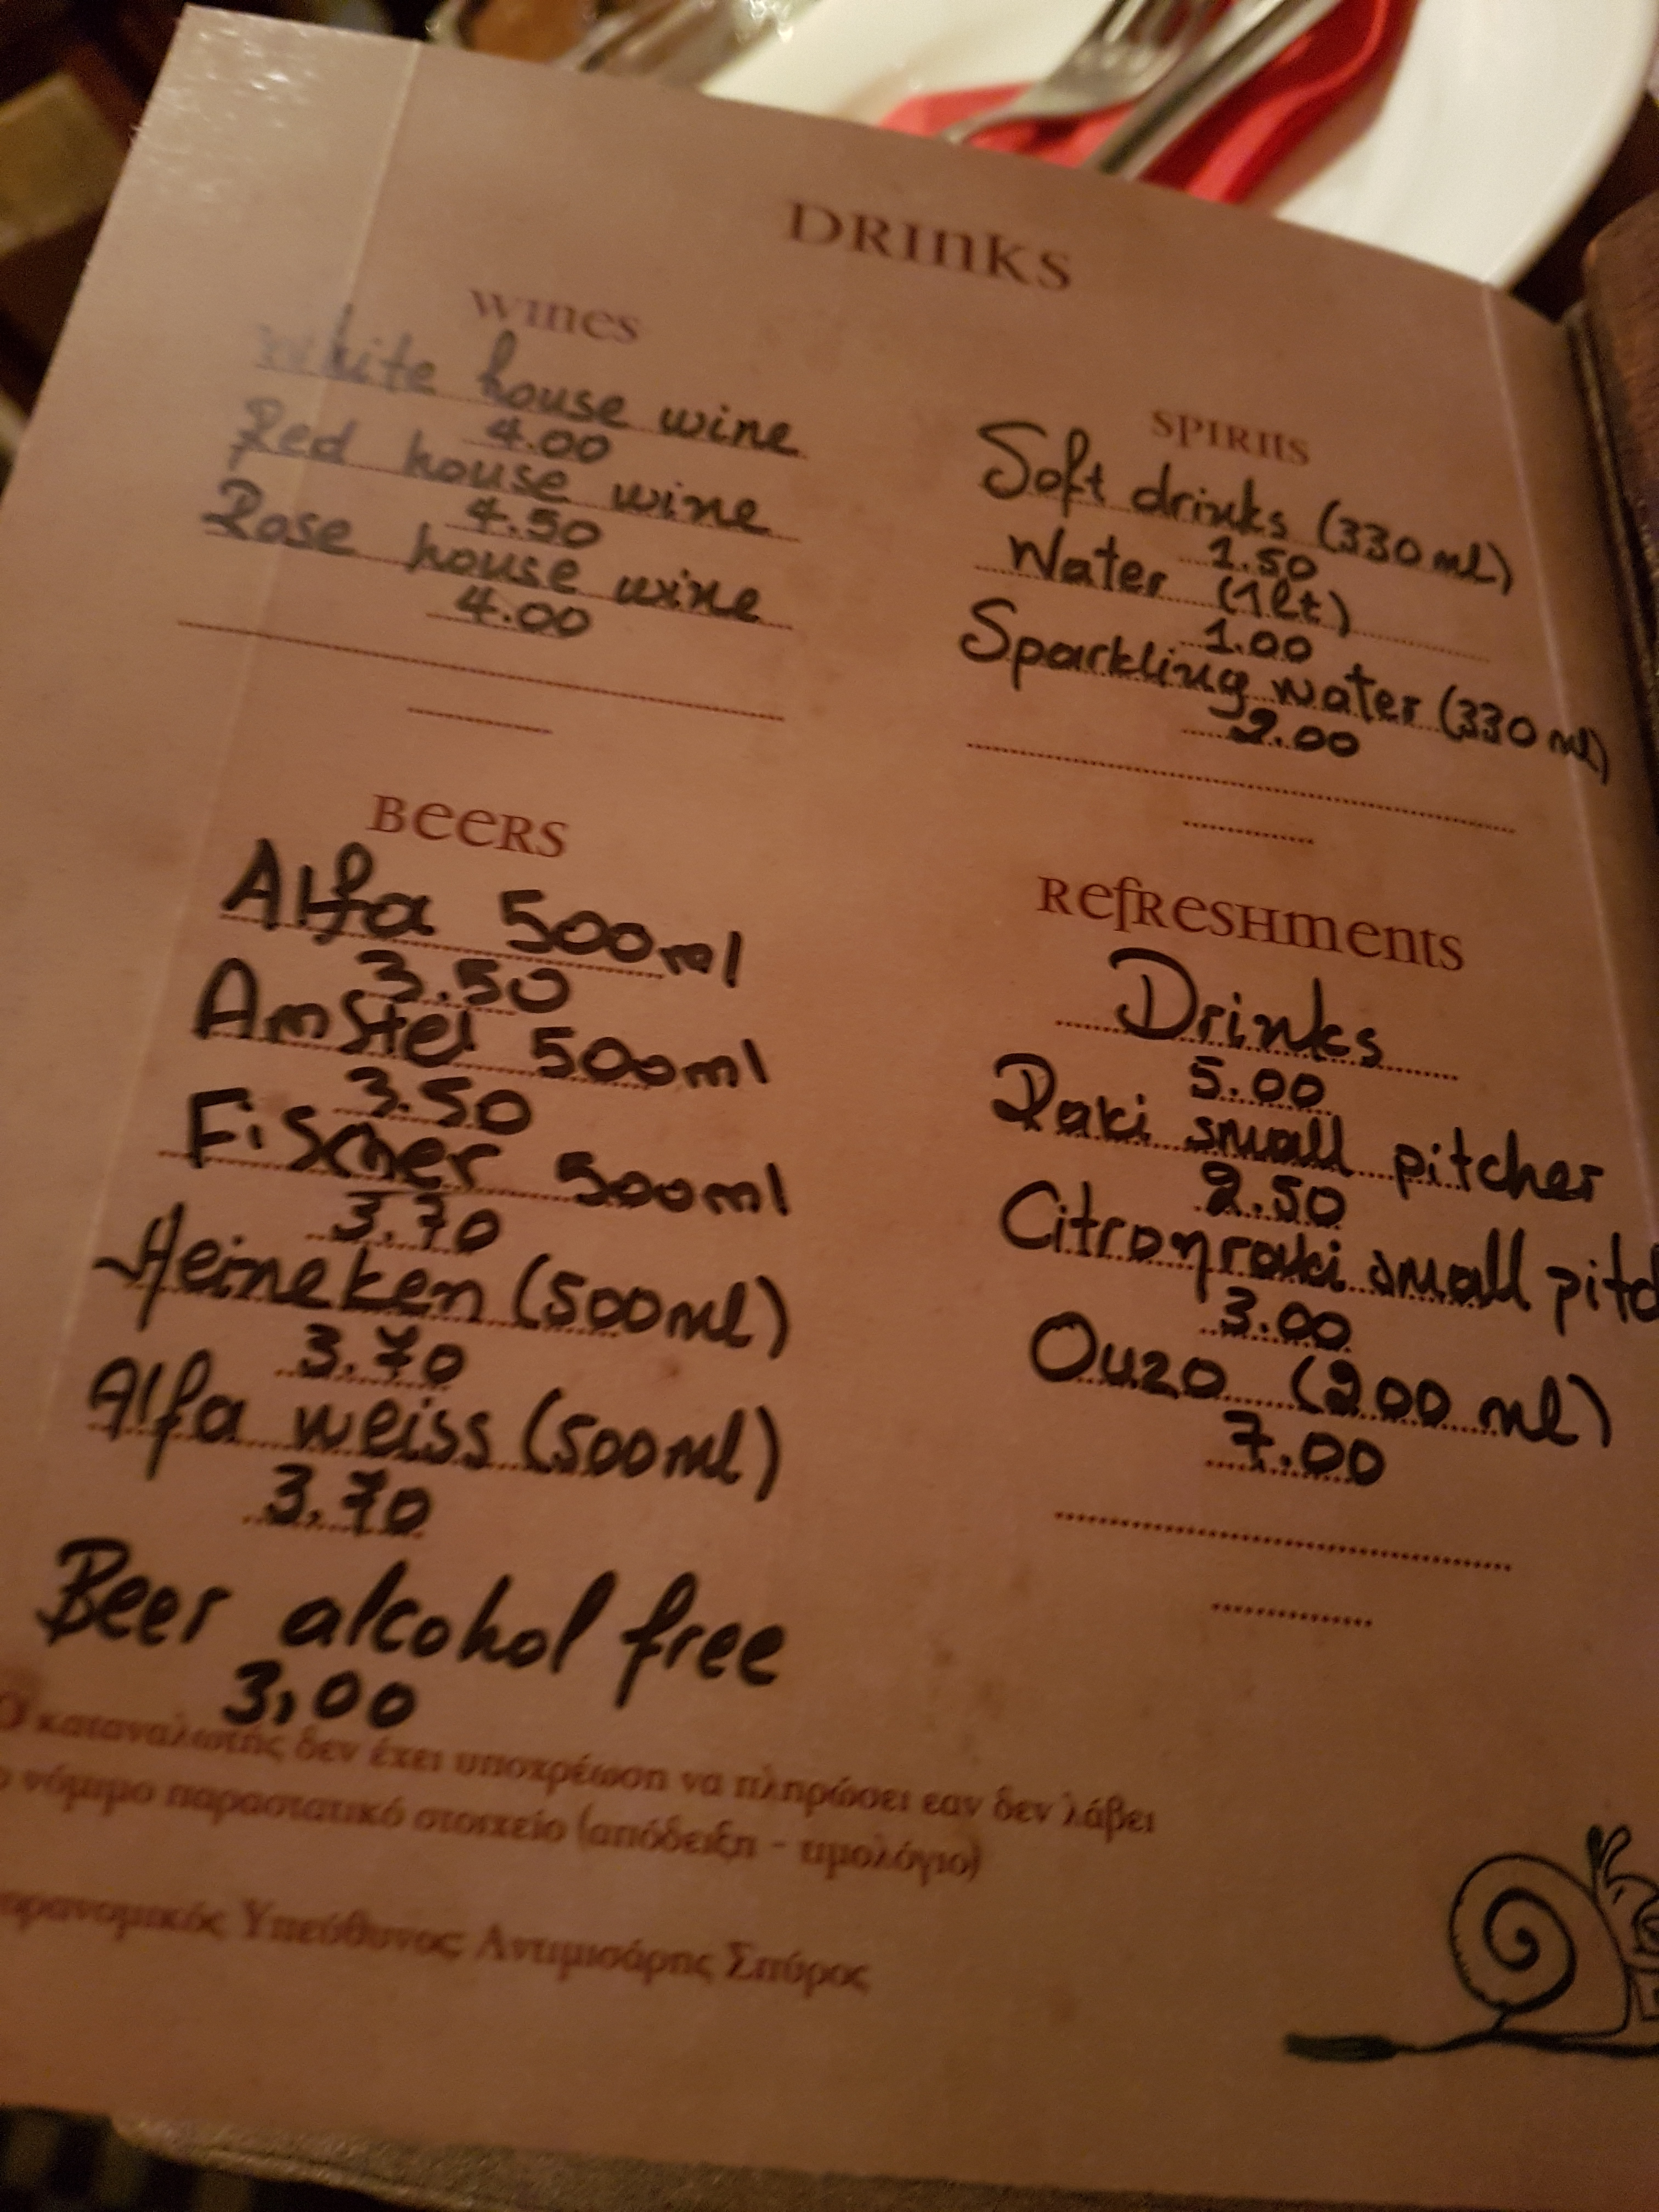 DRINKS
WINES
White house wine
4.00
Red house wine
4.50
Rose house wine
4.00
BEERS
Alfa 500ml
3.50
Amstel 500ml
3.50
Fischer 500ml
3.70
Heineken (500ml)
3.70
Alfa weiss (500ml)
3.70
Beer alcohol free
3,00
SPIRITS
Soft drinks (330 ml)
1.50
Water (1lt)
1.00
Sparkling water (330 ml)
2.00
REFRESHMENTS
Drinks
5.00
Raki small pitcher
2.50
Citronraki small pitc
3.00
Ouzo (200 ml)
7.00
Ο καταναλωτής δεν έχει υποχρέωση να πληρώσει εαν δεν λάβει
ο νόμιμο παραστατικό στοιχείο (απόδειξη - τιμολόγιο)
ορανομικός Υπεύθυνος Αντιμισάρης Σπύρος